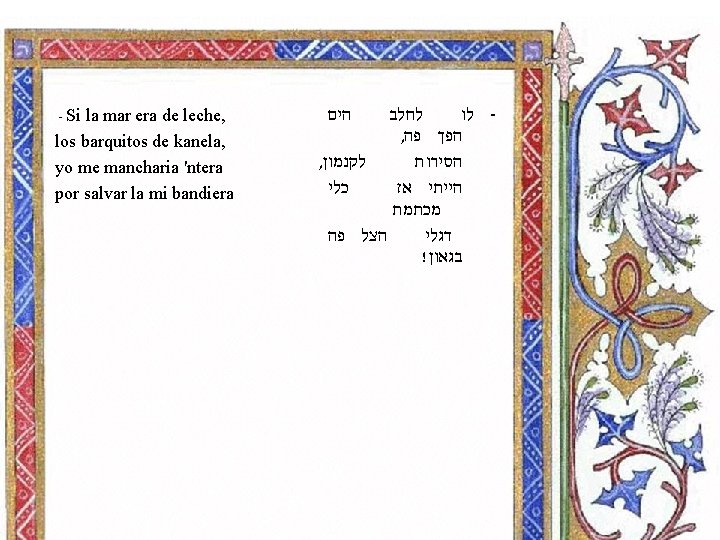 - Si la mar era de leche,
los barquitos de kanela,
yo me mancharia 'ntera
por salvar la mi bandiera
- לו לחלב הים
הפך פה,
הסירות לקנמון,
הייתי אז כלי
מכתמת
דגלי הצל פה
בגאון!